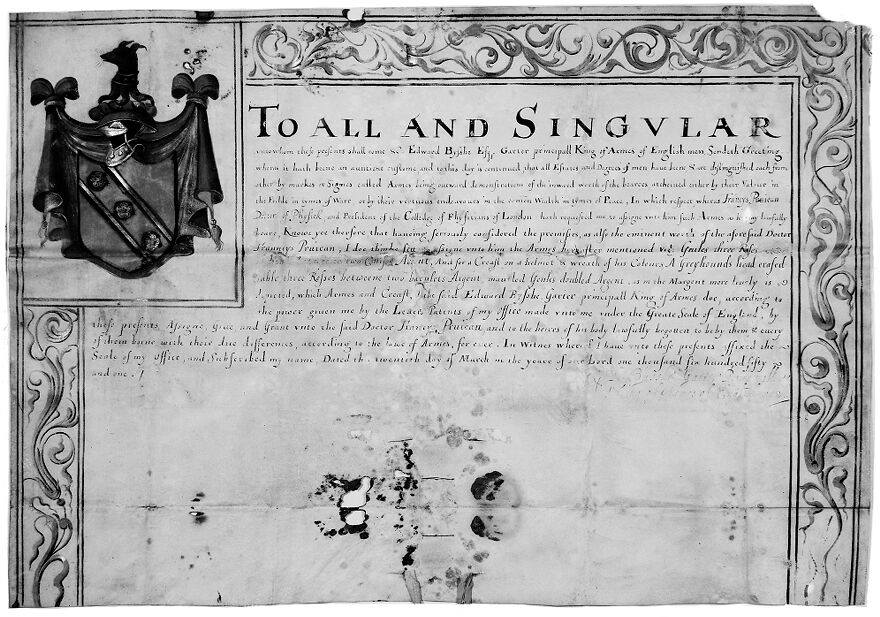 TO ALL AND SINGVLAR
vnto whom these presents shall come &c. Edward Bysshe Esqr. Garter principall King of Armes of English men, Sendeth Greeting
whereas it hath beene an auntient custome and to this day is continued, that all Estates and Degrees of men have been & are distinguished each from
other by markes or Signes called Armes being outward demonstrations of the inward worth of the bearers atcheived either by their Valour in
the Feilds in tymes of Warr, or by their vertuous endeavours in the Wealth in tymes of Peace, In which respect whereas Francys Pruiean
Doctor of Physick and President of the Colledge of Physitians of London hath requested me to assigne vnto him such Armes as he may lawfully
beare, Knowe yee therefore that haveing seriously considered the premisses, as also the eminent worth of the aforesaid Doctor
Frauncys Pruiean, I doe thinke fitt to assigne vnto him the Armes hereafter mentioned vizt. Geules three Roses
Argent, And for a Creast on a helmet & wreath of his Colours A Greyhounds head erased
sable three Roses betweene two barrulets Argent, mantled Geules doubled Argent, as in the Margent more lively is
depicted, which Armes and Creast, I the said Edward Bysshe Garter principall King of Armes doe, according to
the power given me by the Letters Patents of my office made vnto me vnder the Greate Seale of England, by
these presents Assigne, give and grant vnto the said Doctor Francys Pruiean, and to the heires of his body lawfully begotten to be by them & every
of them borne with their due differences, according to the law of Armes, for ever. In Witnes whereof I have vnto these presents affixed the
Seale of my Office, and Subscribed my name. Dated the twentieth day of March in the yeare of our Lord one thousand six hundred fifty
and one.